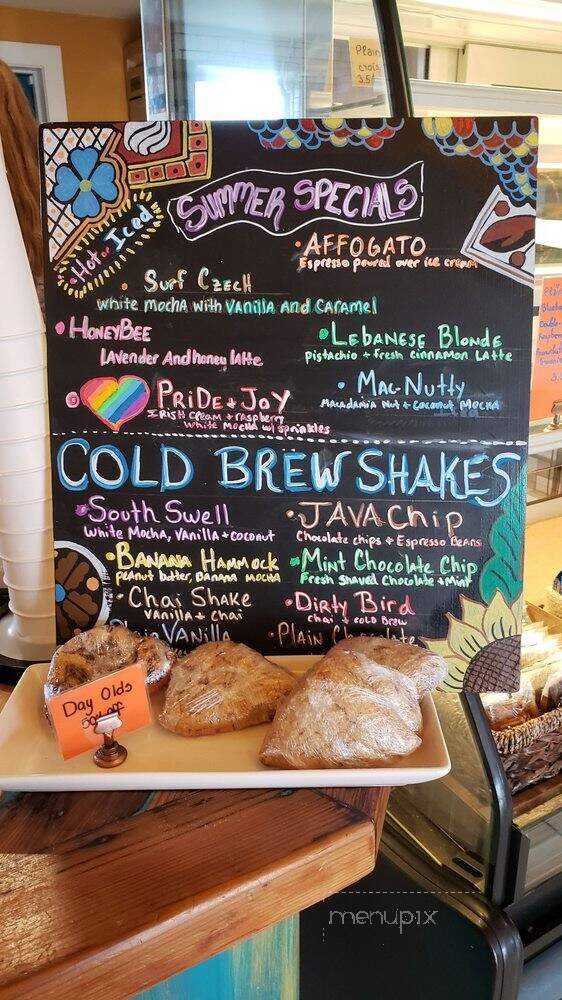 Plain
crois
3.5
Summer Specials
Hot or Iced
• AFFOGATO
Espresso poured over ice cream
• Surf Czech
White mocha with Vanilla And Caramel
• HoneyBee
Lavender And honey latte
• Lebanese Blonde
pistachio + fresh cinnamon Latte
• PRIDE + JOY
IRISH cream + raspberry
white mocha w/ sprinkles
• Mac-Nutty
Macadamia Nut + Coconut Mocha
COLD BREW SHAKES
• South Swell
White Mocha, Vanilla + coconut
• JAVA Chip
Chocolate chips + Espresso Beans
• Banana Hammock
peanut butter, banana mocha
• Mint Chocolate Chip
Fresh shaved Chocolate + Mint
• Chai Shake
Vanilla + Chai
• Dirty Bird
chai + cold Brew
Plain Vanilla
• Plain Chocolate
Day Olds
50% off
menupix